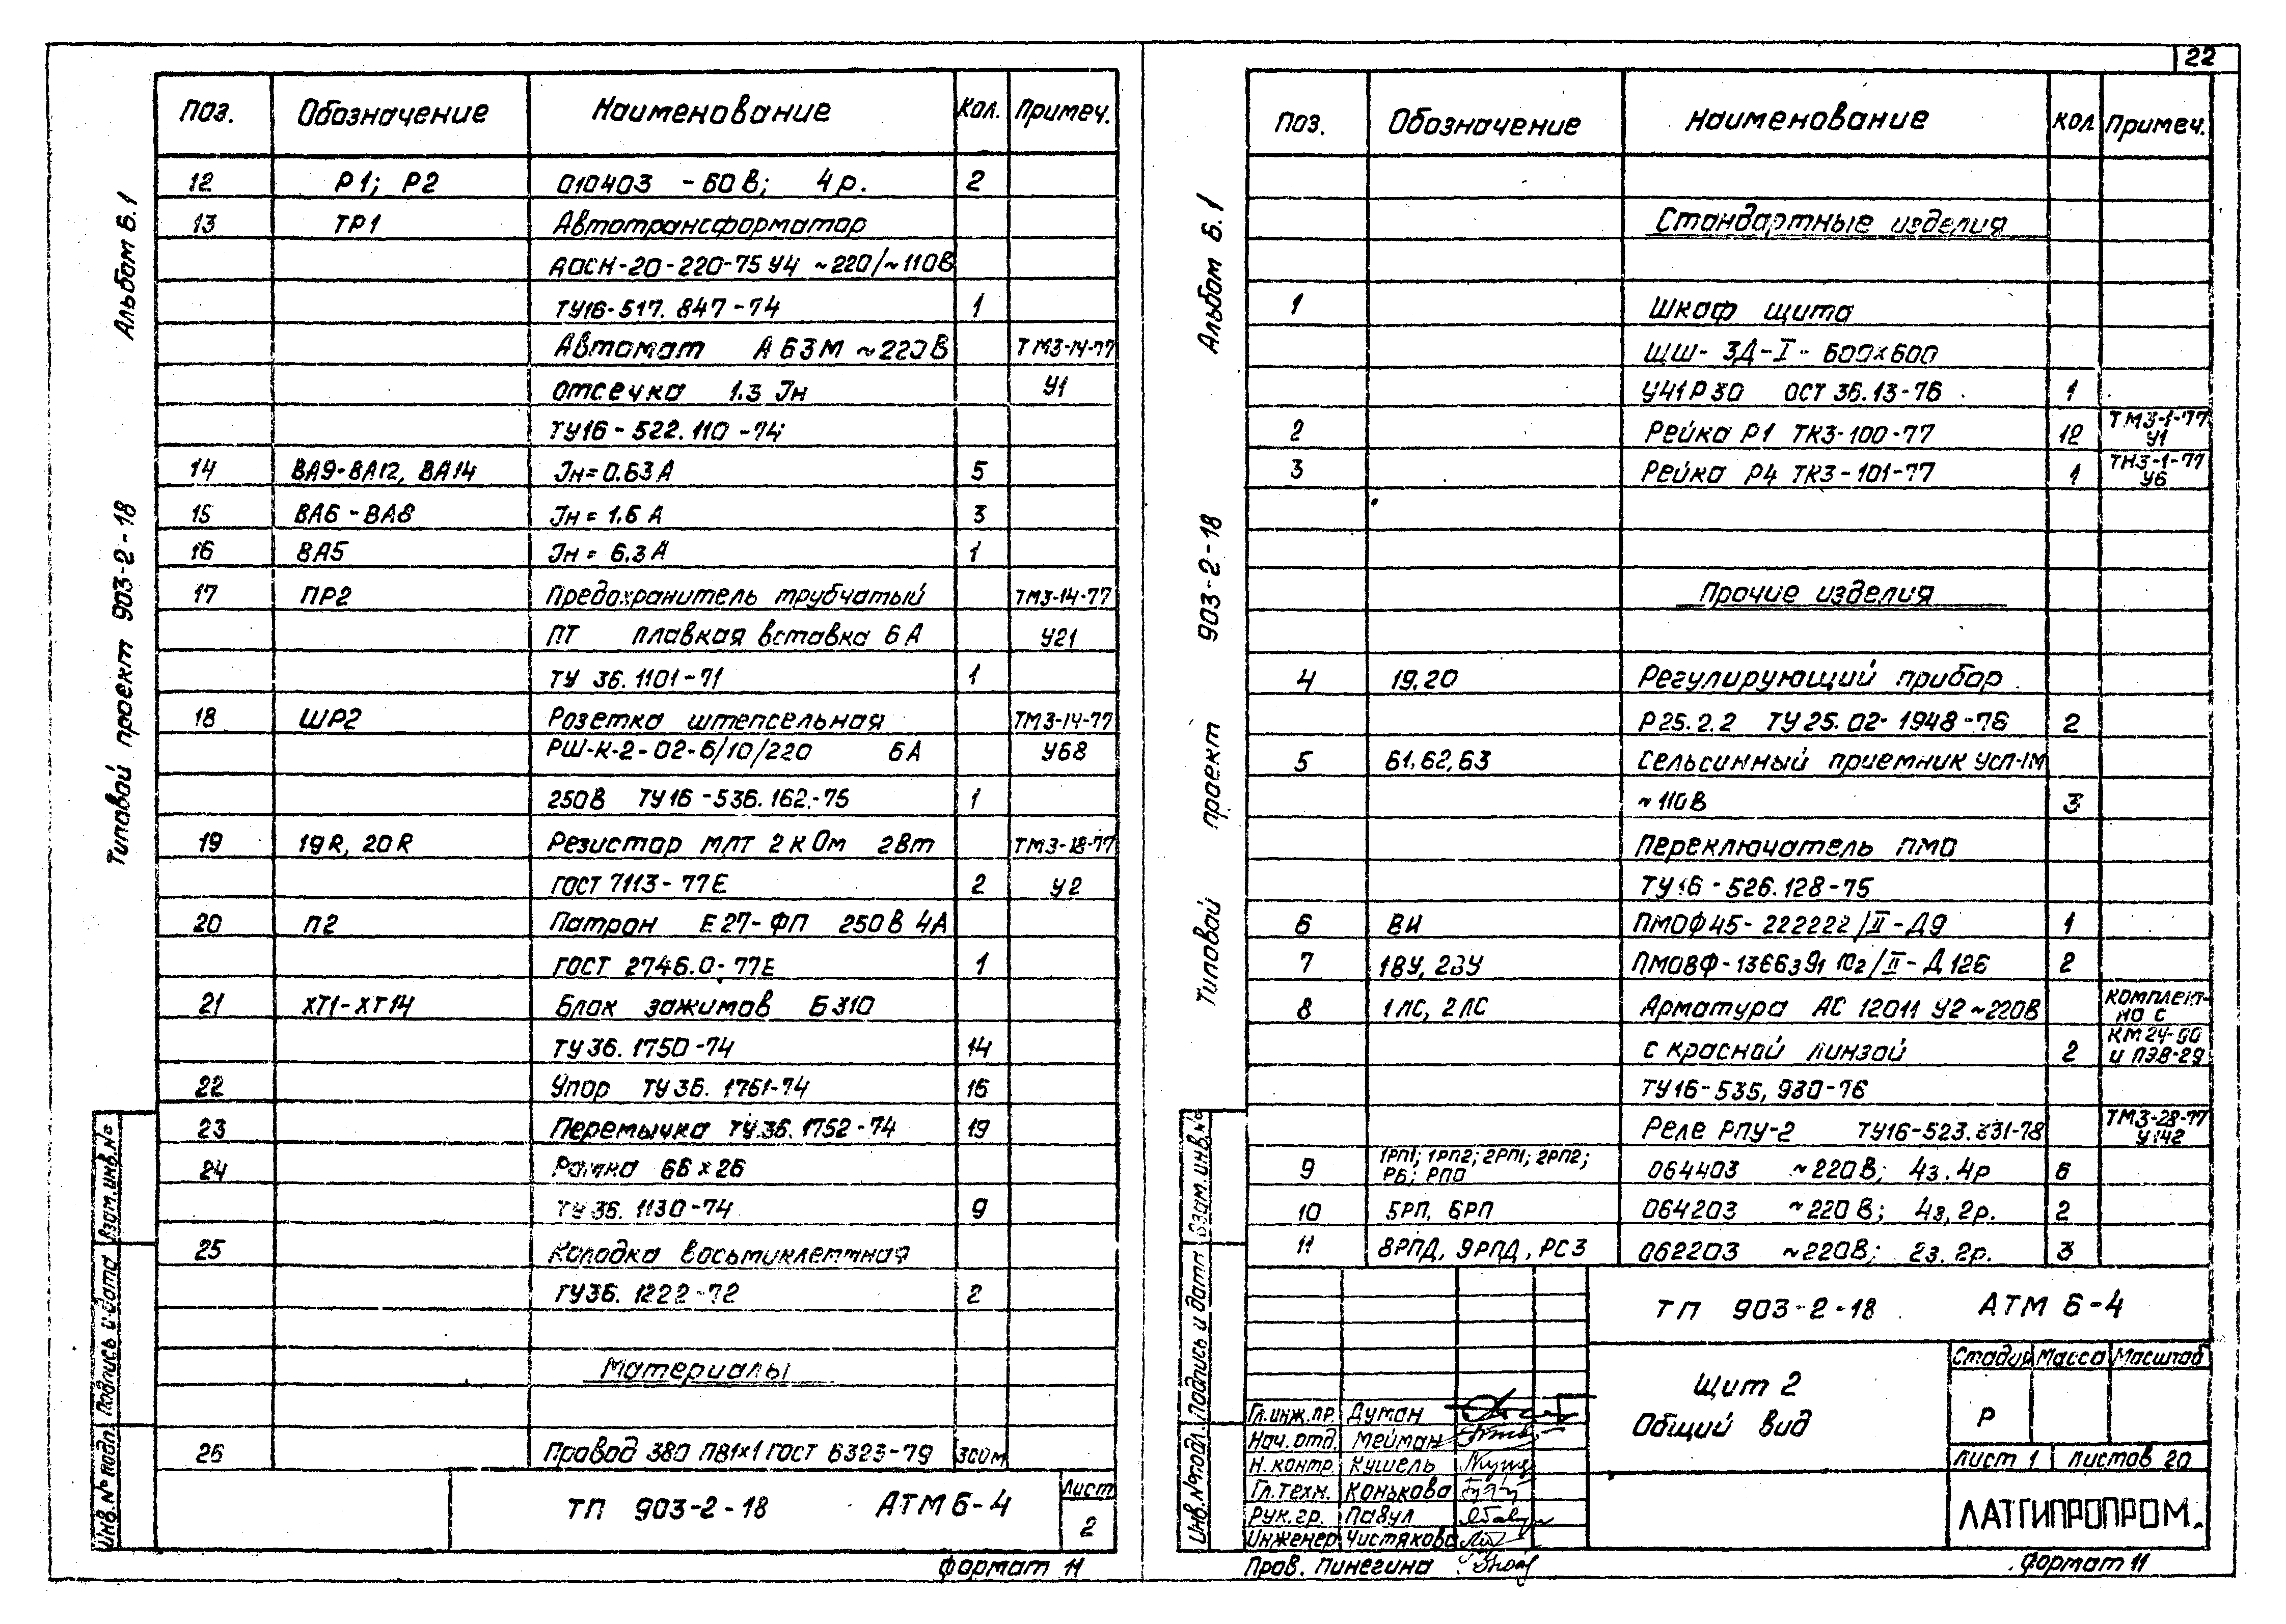 22
Альбом 6.1
Типовой проект 903-2-18
Поз. Обозначение Наименование Кол. Примеч.
12 Р1; Р2 010403 -60В; 4р. 2
13 ТР1 Автотрансформатор
АОСН-20-220-75 У4 ~220/~110В
ТУ16-517.847-74 1
Автомат А63М ~220В ТМ3-14-77
отсечка 1.3 Jн У1
ТУ16-522.110-74;
14 8А9-8А12, 8А14 Jн=0.63А 5
15 8А6-8А8 Jн = 1.6А 3
16 8А5 Jн = 6.3А 1
17 ПР2 Предохранитель трубчатый ТМ3-14-77
ПТ плавкая вставка 6А У21
ТУ 36.1101-71 1
18 ШР2 Розетка штепсельная ТМ3-14-77
РШ-К-2-02-6/10/220 6А У68
250В ТУ16-536.162-75 1
19 19R, 20R Резистор МЛТ 2кОм 2Вт ТМ3-18-77
ГОСТ 7113-77Е 2 У2
20 П2 Патрон Е27-ФП 250В 4А
ГОСТ 2746.0-77Е 1
21 ХТ1-ХТ14 Блок зажимов БЗ10
ТУ36.1750-74 14
22 Упор ТУ36.1761-74 16
23 Перемычка ТУ36.1752-74 19
24 Рамка 66х26
ТУ36.1130-74 9
25 Колодка восьмиклеммная
ТУ36.1222-72 2
Материалы
26 Провод 380 ПВ1х1 ГОСТ 6323-79 300м
ТП 903-2-18 АТМ6-4 Лист
2
Инв.№ подл. Подпись и дата Взам.инв.№
Формат 11
Альбом 6.1
Типовой проект 903-2-18
Поз. Обозначение Наименование Кол Примеч.
Стандартные изделия
1 Шкаф щита
ЩШ-ЗД-I-600х600
У41Р30 ОСТ 36.13-76 1
2 Рейка Р1 ТК3-100-77 12 ТМ3-1-77
У1
3 Рейка Р4 ТК3-101-77 1 ТМ3-1-77
У6
Прочие изделия
4 19,20 Регулирующий прибор
Р25.2.2 ТУ25.02-1948-76 2
5 61,62,63 Сельсинный приемник УСП-1М
~110В 3
Переключатель ПМО
ТУ16-526.128-75
6 ВИ ПМОФ45-222222/II-Д9 1
7 18У, 28У ПМОВФ-1366391102/II-Д126 2
8 1ЛС, 2ЛС Арматура АС 12011 У2 ~220В комплект-
но с
с красной линзой 2 КМ24-90
и ПЭВ-29
ТУ16-535,930-76
Реле РПУ-2 ТУ16-523.331-78 ТМ3-28-77
У142
9 1РП1; 1РП2; 2РП1; 2РП2;
РБ; РПО 064403 ~220В; 4з.4р 6
10 5РП, 6РП 064203 ~220В; 4з,2р. 2
11 8РПД, 9РПД, РС3 062203 ~220В; 2з.2р. 3
ТП 903-2-18 АТМ 6-4
Щит 2
Общий вид
Стадия Масса Масштаб
Р
Лист 1 Листов 20
ЛАТГИПРОПРОМ.
Гл.инж.пр. Думан
Нач. отд. Мейман
Н. контр. Кушель
Гл.техн. Конькова
Рук.гр. Павул
Инженер Чистякова
Пров. Пинегина
Инв.№ подл. Подпись и дата Взам.инв.№
Формат 11